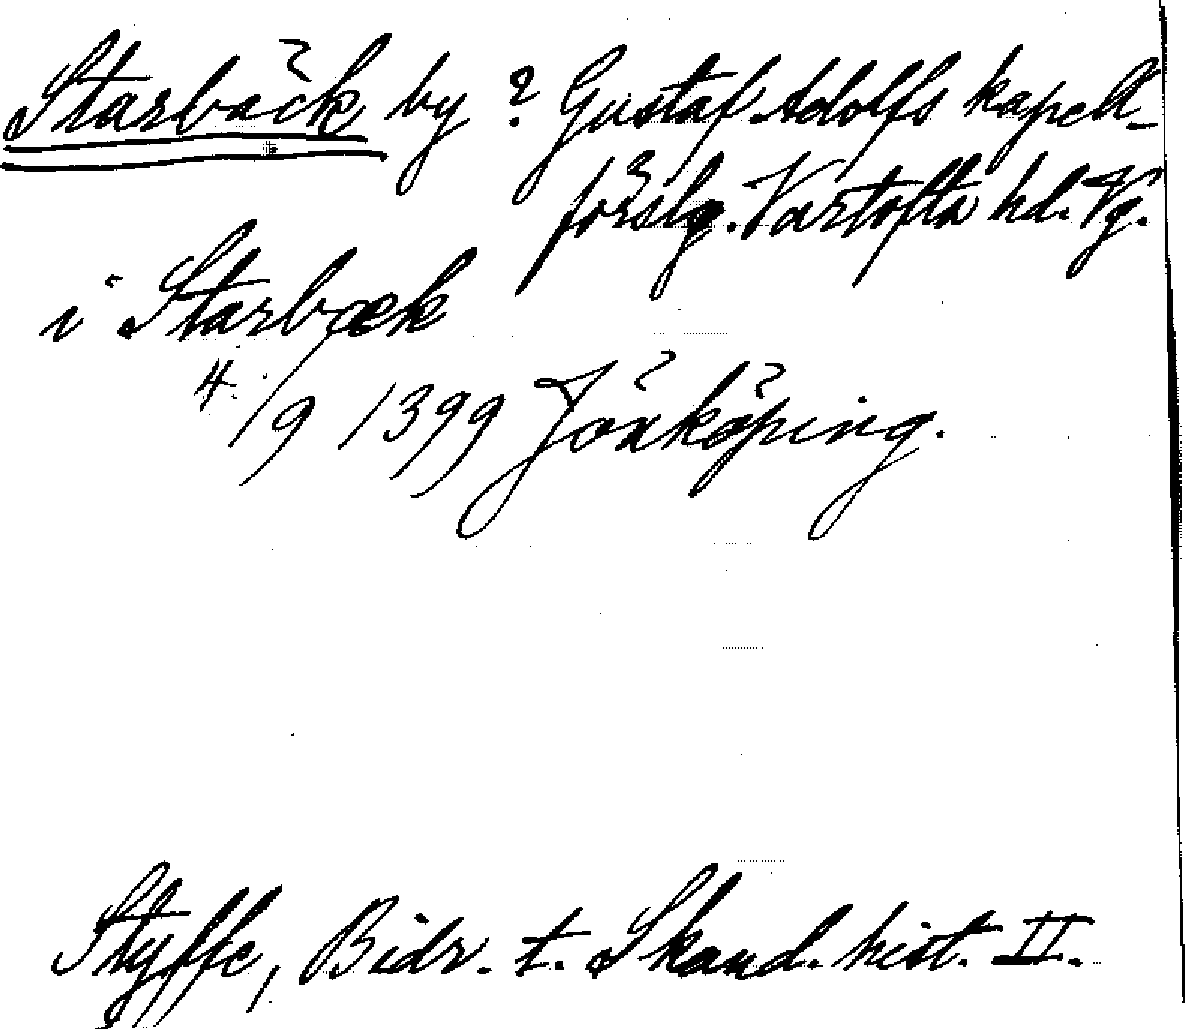 Starbäck by ? Gustaf Adolfs kapell-
förslg. Vartofta hd. Vg.
i Starbæk
4/9 1399 Jönköping.
Styffe, Bidr. t. Skand. hist. II.